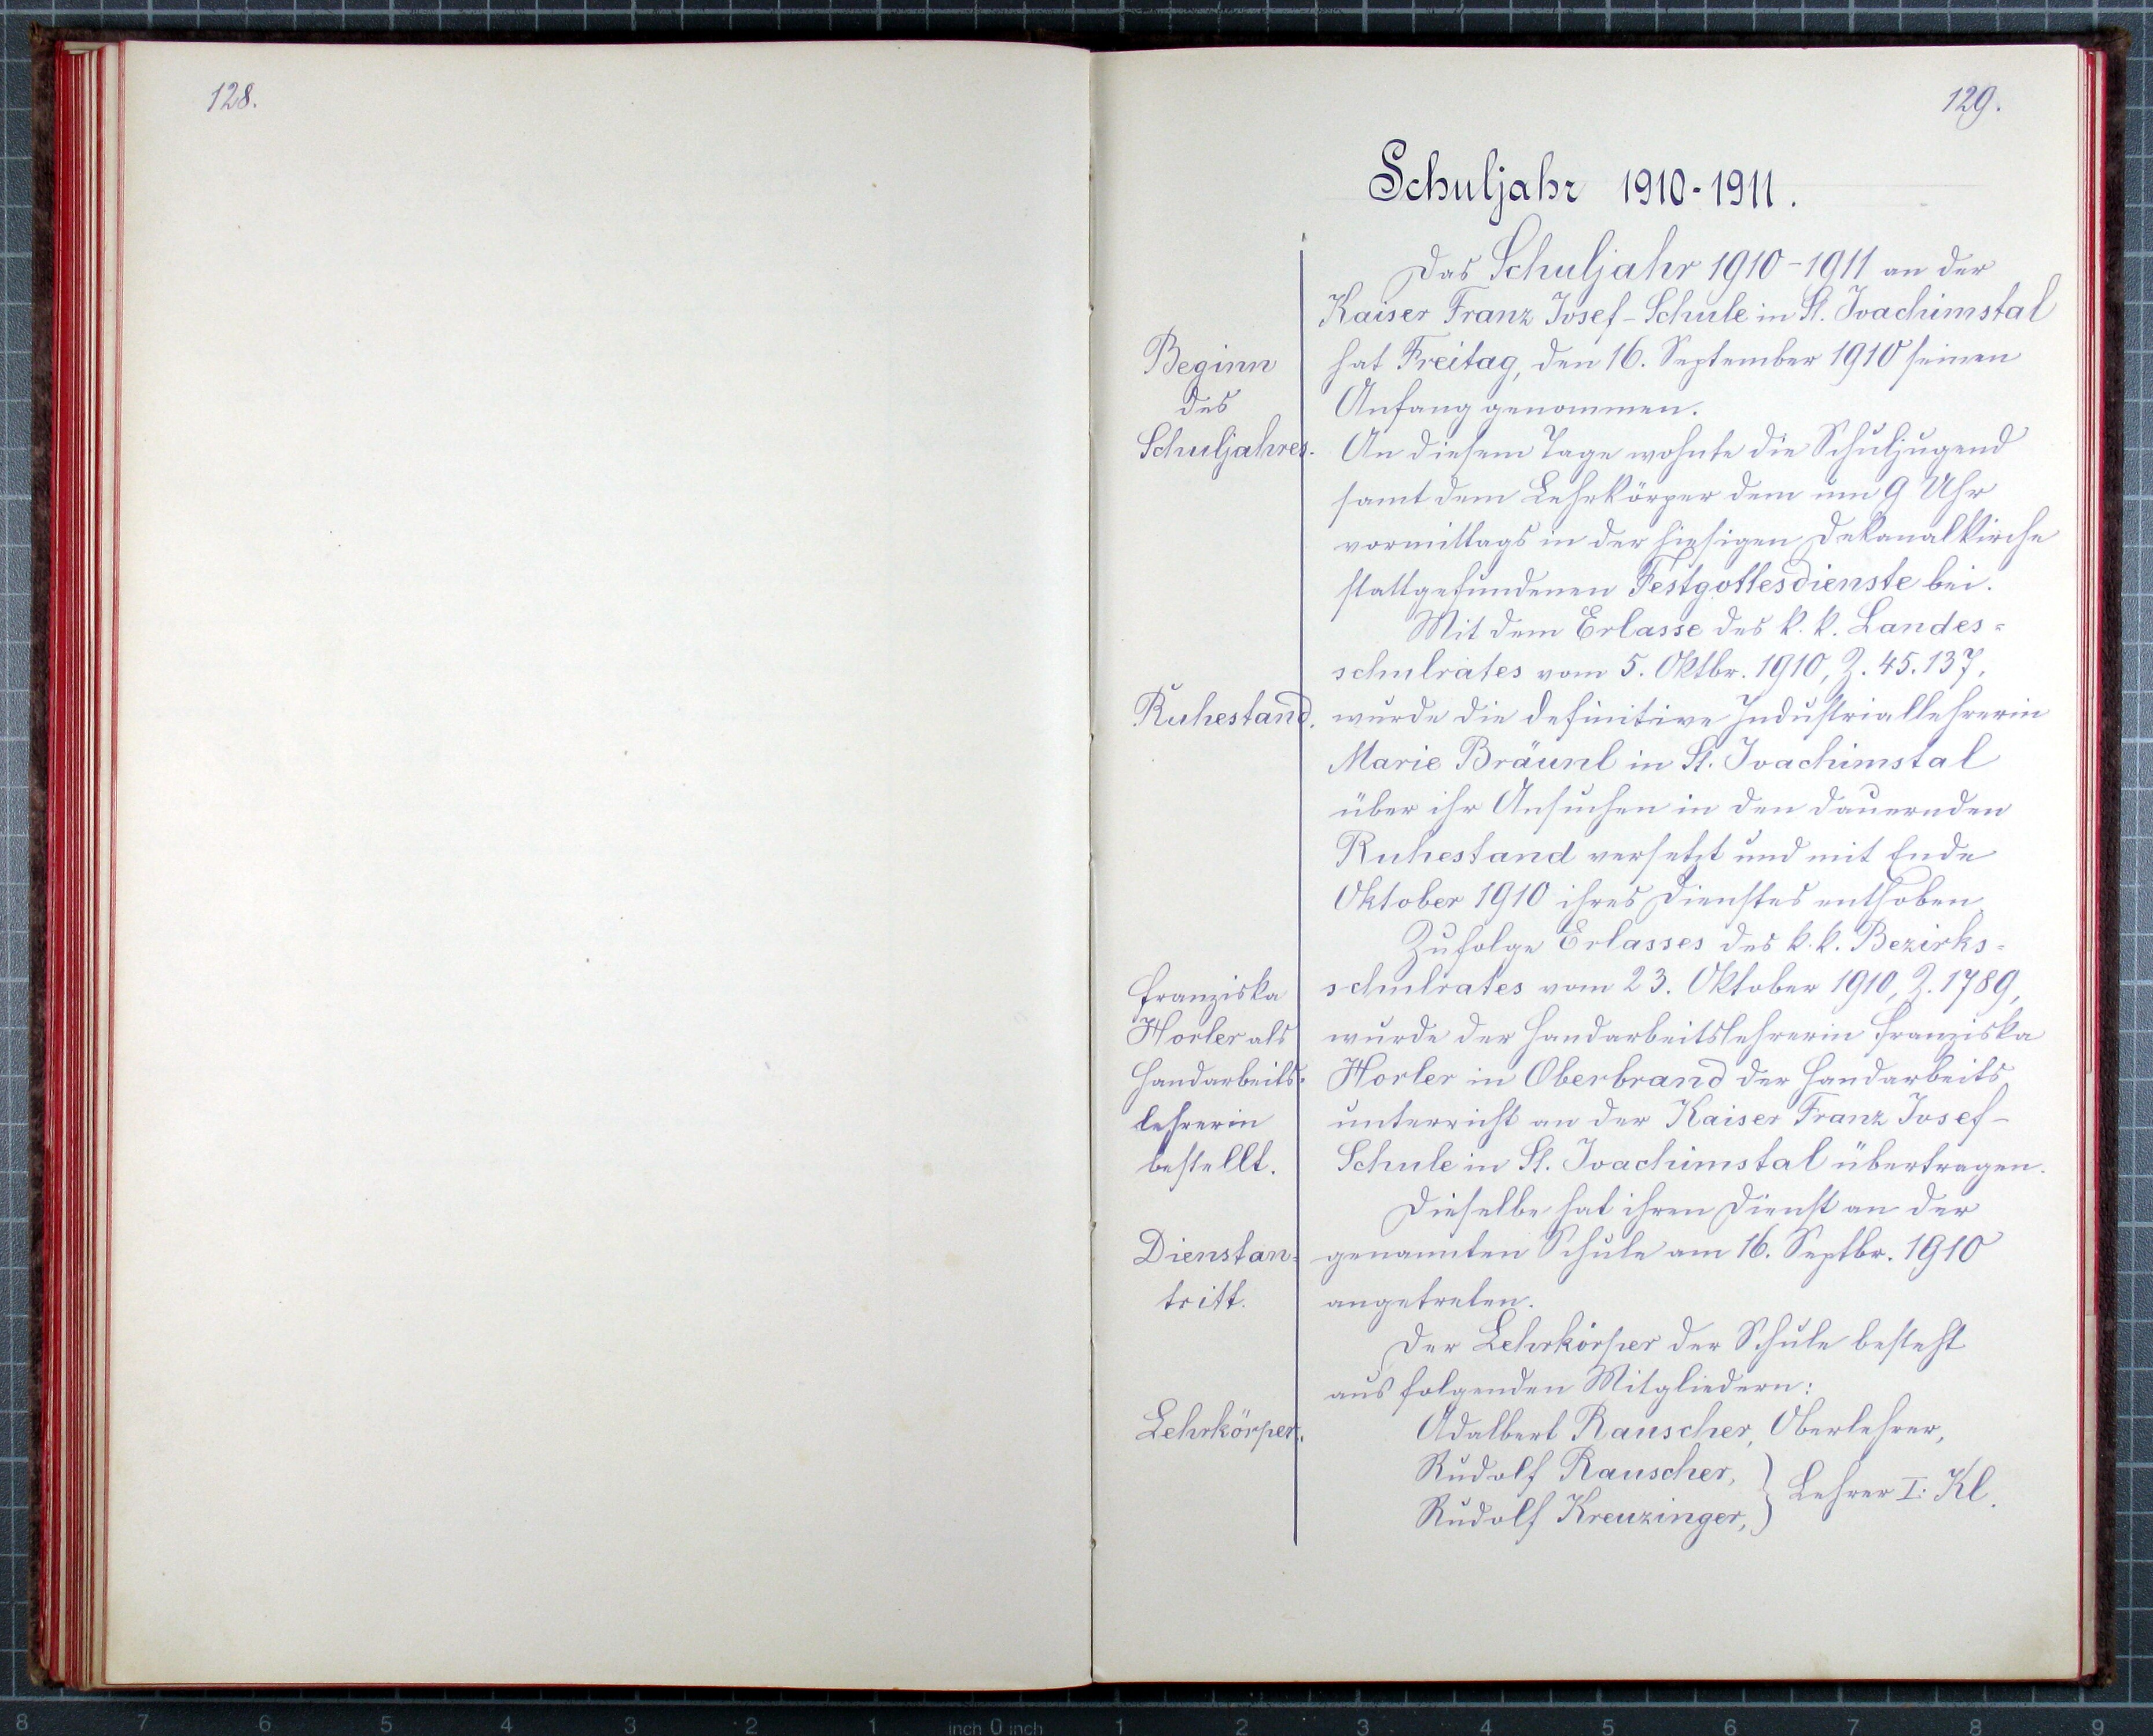 128.
129.
Schuljahr 1910-1911.
Das Schuljahr 1910-1911 an der
Kaiser Franz Josef-Schule in St. Joachimstal
Beginn
des
Schuljahres.
hat Freitag, den 16. September 1910 seinen
Anfang genommen.
An diesem Tage wohnte die Schuljugend
samt dem Lehrkörper dem um 9 Uhr
vormittags in der hiesigen Dekanalkirche
stattgefundenen Festgottesdienste bei.
Mit dem Erlasse des k. k. Landes=
schulrates vom 5. Oktbr. 1910, Z. 45.137,
Ruhestand.
wurde die definitive Industriallehrerin
Marie Bräunl in St. Joachimstal
über ihr Ansuchen in den dauernden
Ruhestand versetzt und mit Ende
Oktober 1910 ihres Dienstes enthoben.
Zufolge Erlasses des k. k. Bezirks=
Franziska
Horler als
Handarbeits=
lehrerin
bestellt.
schulrates vom 23. Oktober 1910, Z. 1789,
wurde der Handarbeitslehrerin Franziska
Horler in Oberbrand der Handarbeits
unterricht an der Kaiser Franz Josef-
Schule in St. Joachimstal übertragen.
Dieselbe hat ihren Dienst an der
Dienstan=
tritt.
genannten Schule am 16. Septbr. 1910
angetreten.
Der Lehrkörper der Schule besteht
aus folgenden Mitgliedern:
Lehrkörper.
Adalbert Rauscher, Oberlehrer,
Rudolf Rauscher,
Rudolf Kreuzinger, } Lehrer I. Kl.
8 7 6 5 4 3 2 1 inch 0 inch 1 2 3 4 5 6 7 8 9